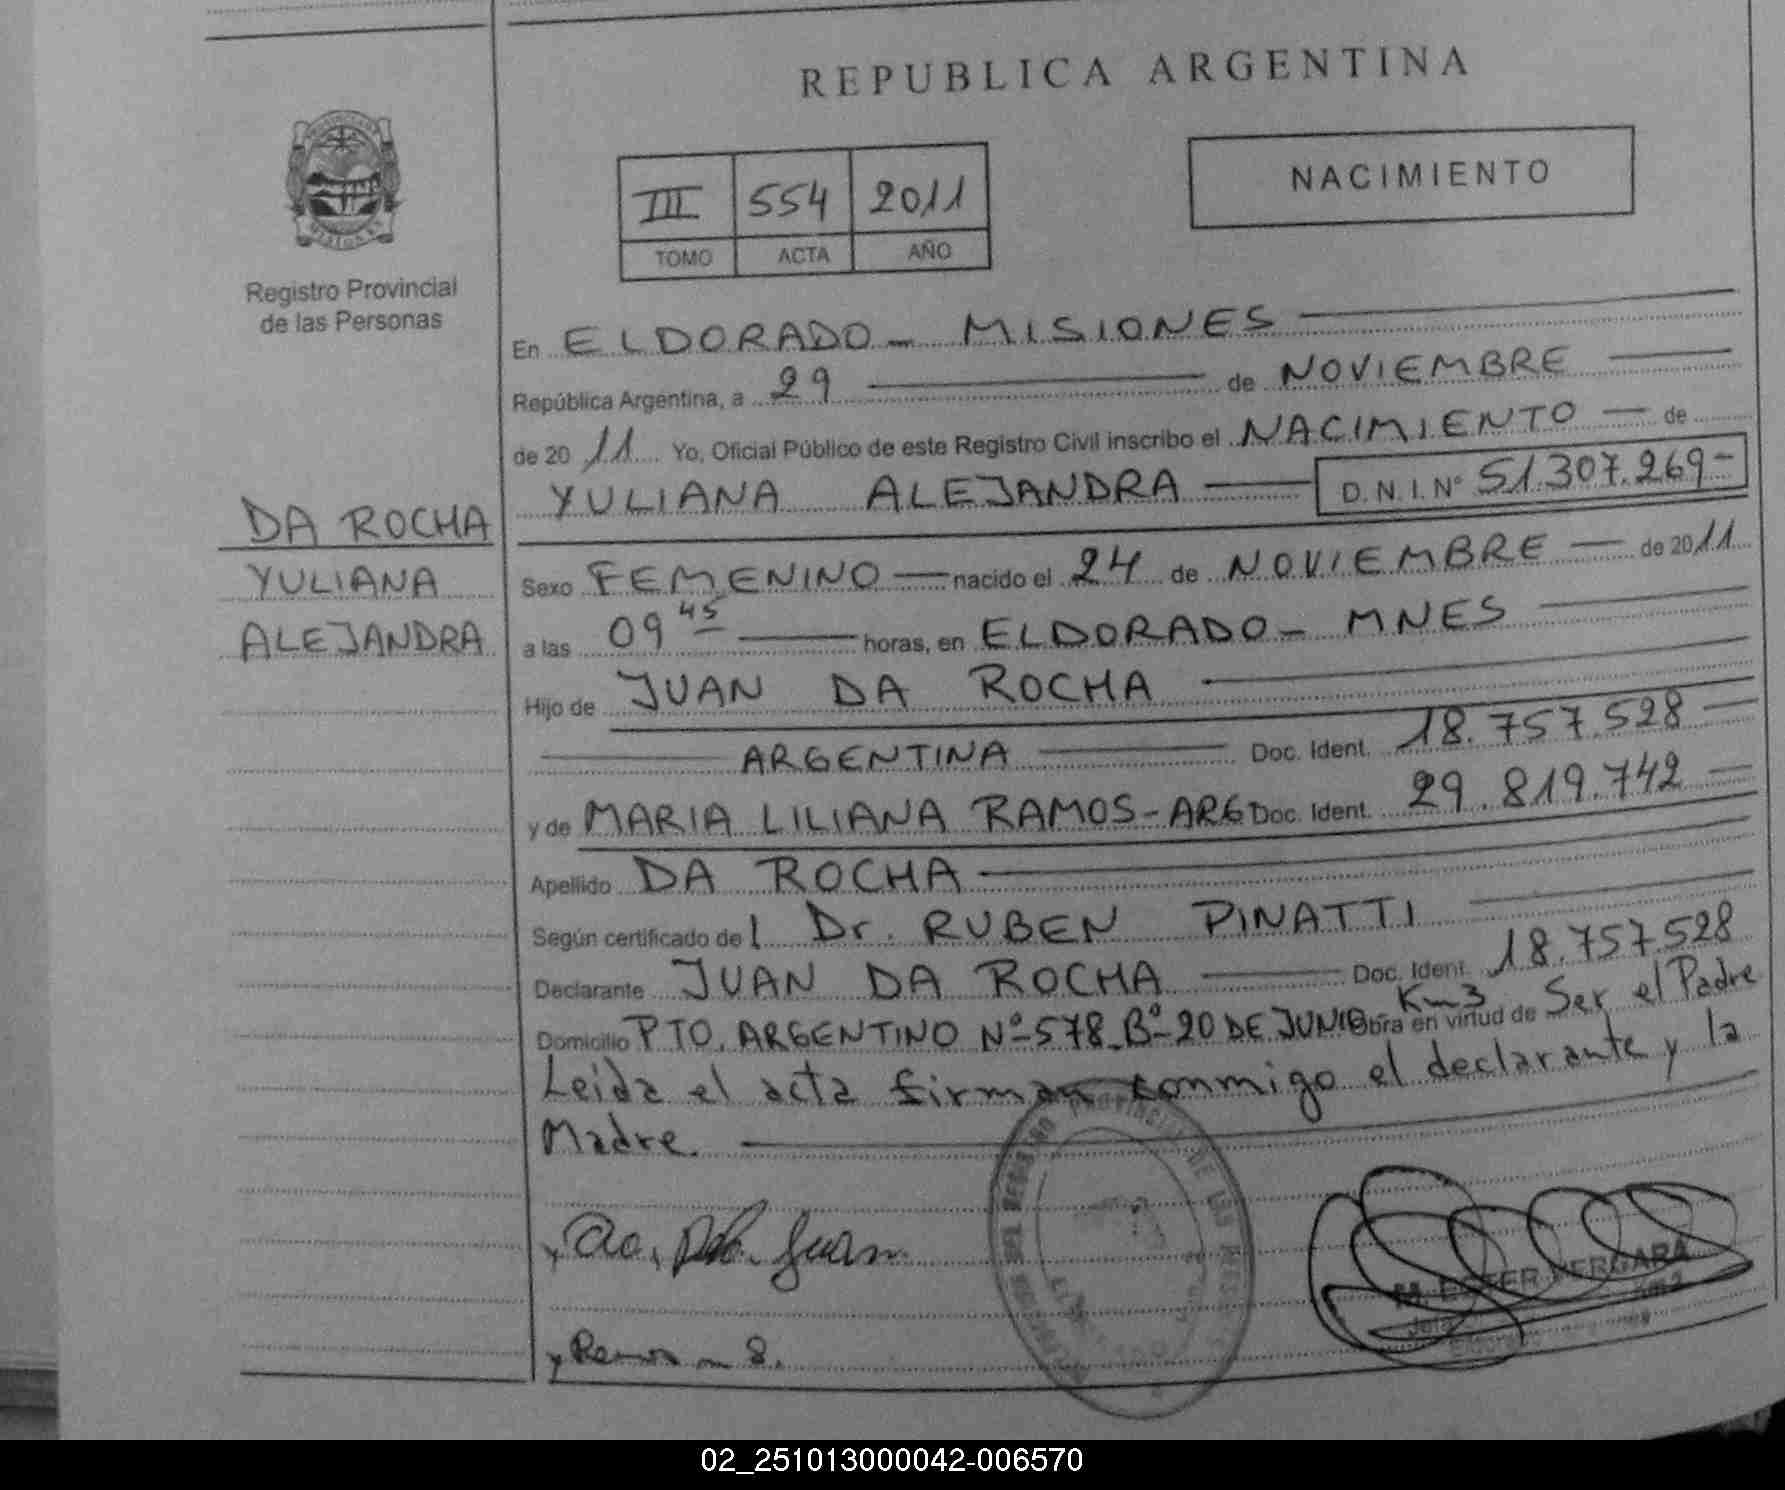 REPUBLICA ARGENTINA
NACIMIENTO
III 554 2011
TOMO ACTA AÑO
Registro Provincial
de las Personas
DA ROCHA
YULIANA
ALEJANDRA
En ELDORADO - MISIONES
República Argentina, a 29 de NOVIEMBRE
de 20 11 Yo, Oficial Público de este Registro Civil inscribo el NACIMIENTO de
YULIANA ALEJANDRA D.N.I. Nº 51.307.269-
Sexo FEMENINO nacido el 24 de NOVIEMBRE de 2011
a las 09 45 horas, en ELDORADO - MNES
Hijo de JUAN DA ROCHA
ARGENTINA Doc. Ident. 18.757.528
y de MARIA LILIANA RAMOS-ARG Doc. Ident. 29.819.742
Apellido DA ROCHA
Según certificado de l Dr. RUBEN PINATTI
Declarante JUAN DA ROCHA Doc. Ident. 18.757.528
Domicilio PTO. ARGENTINO Nº 578 Bº 20 DE JUNIO Km 3 Obra en virtud de Ser el Padre
Leida el acta firman conmigo el declarante y la
Madre.
Juan
M. ESTER VERGARA
02_251013000042-006570